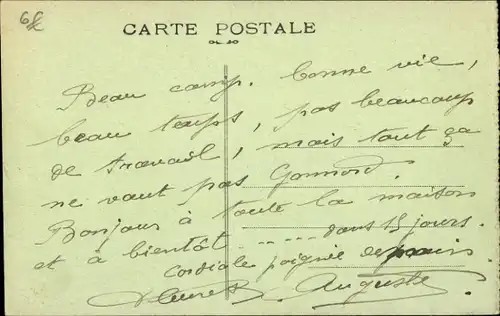 CARTE POSTALE
Beau camp, bonne vie,
beau temps, pas beaucoup
de travail, mais tout ça
ne vaut pas Gonnord.
Bonjour à toute la maison
et à bientôt ..... dans 15 jours.
cordiale poignée de mains
Auguste